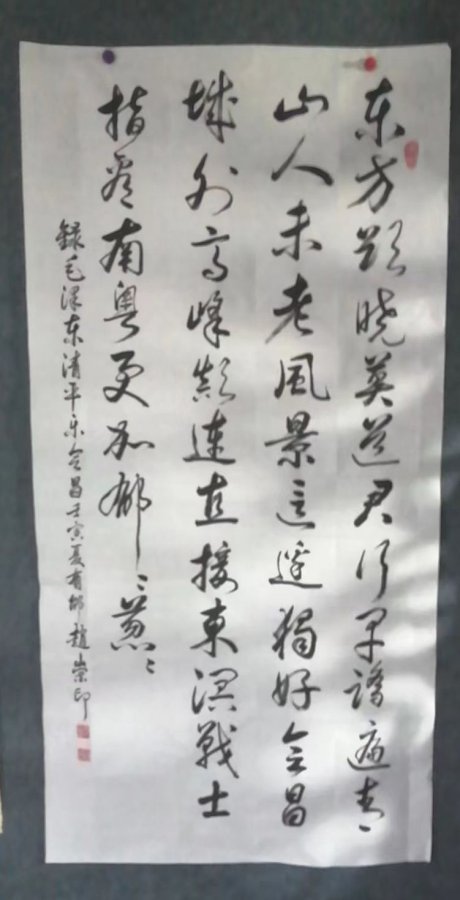 东方欲晓莫道君行早踏遍青
山人未老風景这邊獨好会昌
城外高峰颠連直接東溟戰士
指看南粤更加郁〻葱〻
録毛澤东清平乐会昌壬寅夏有邨趙崇印